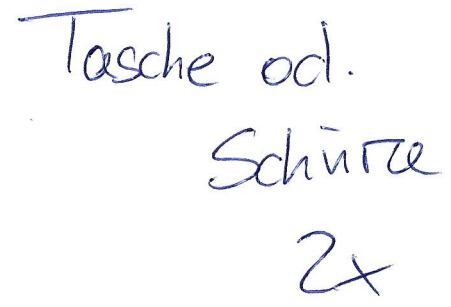 Tasche od.
Schürze
2x